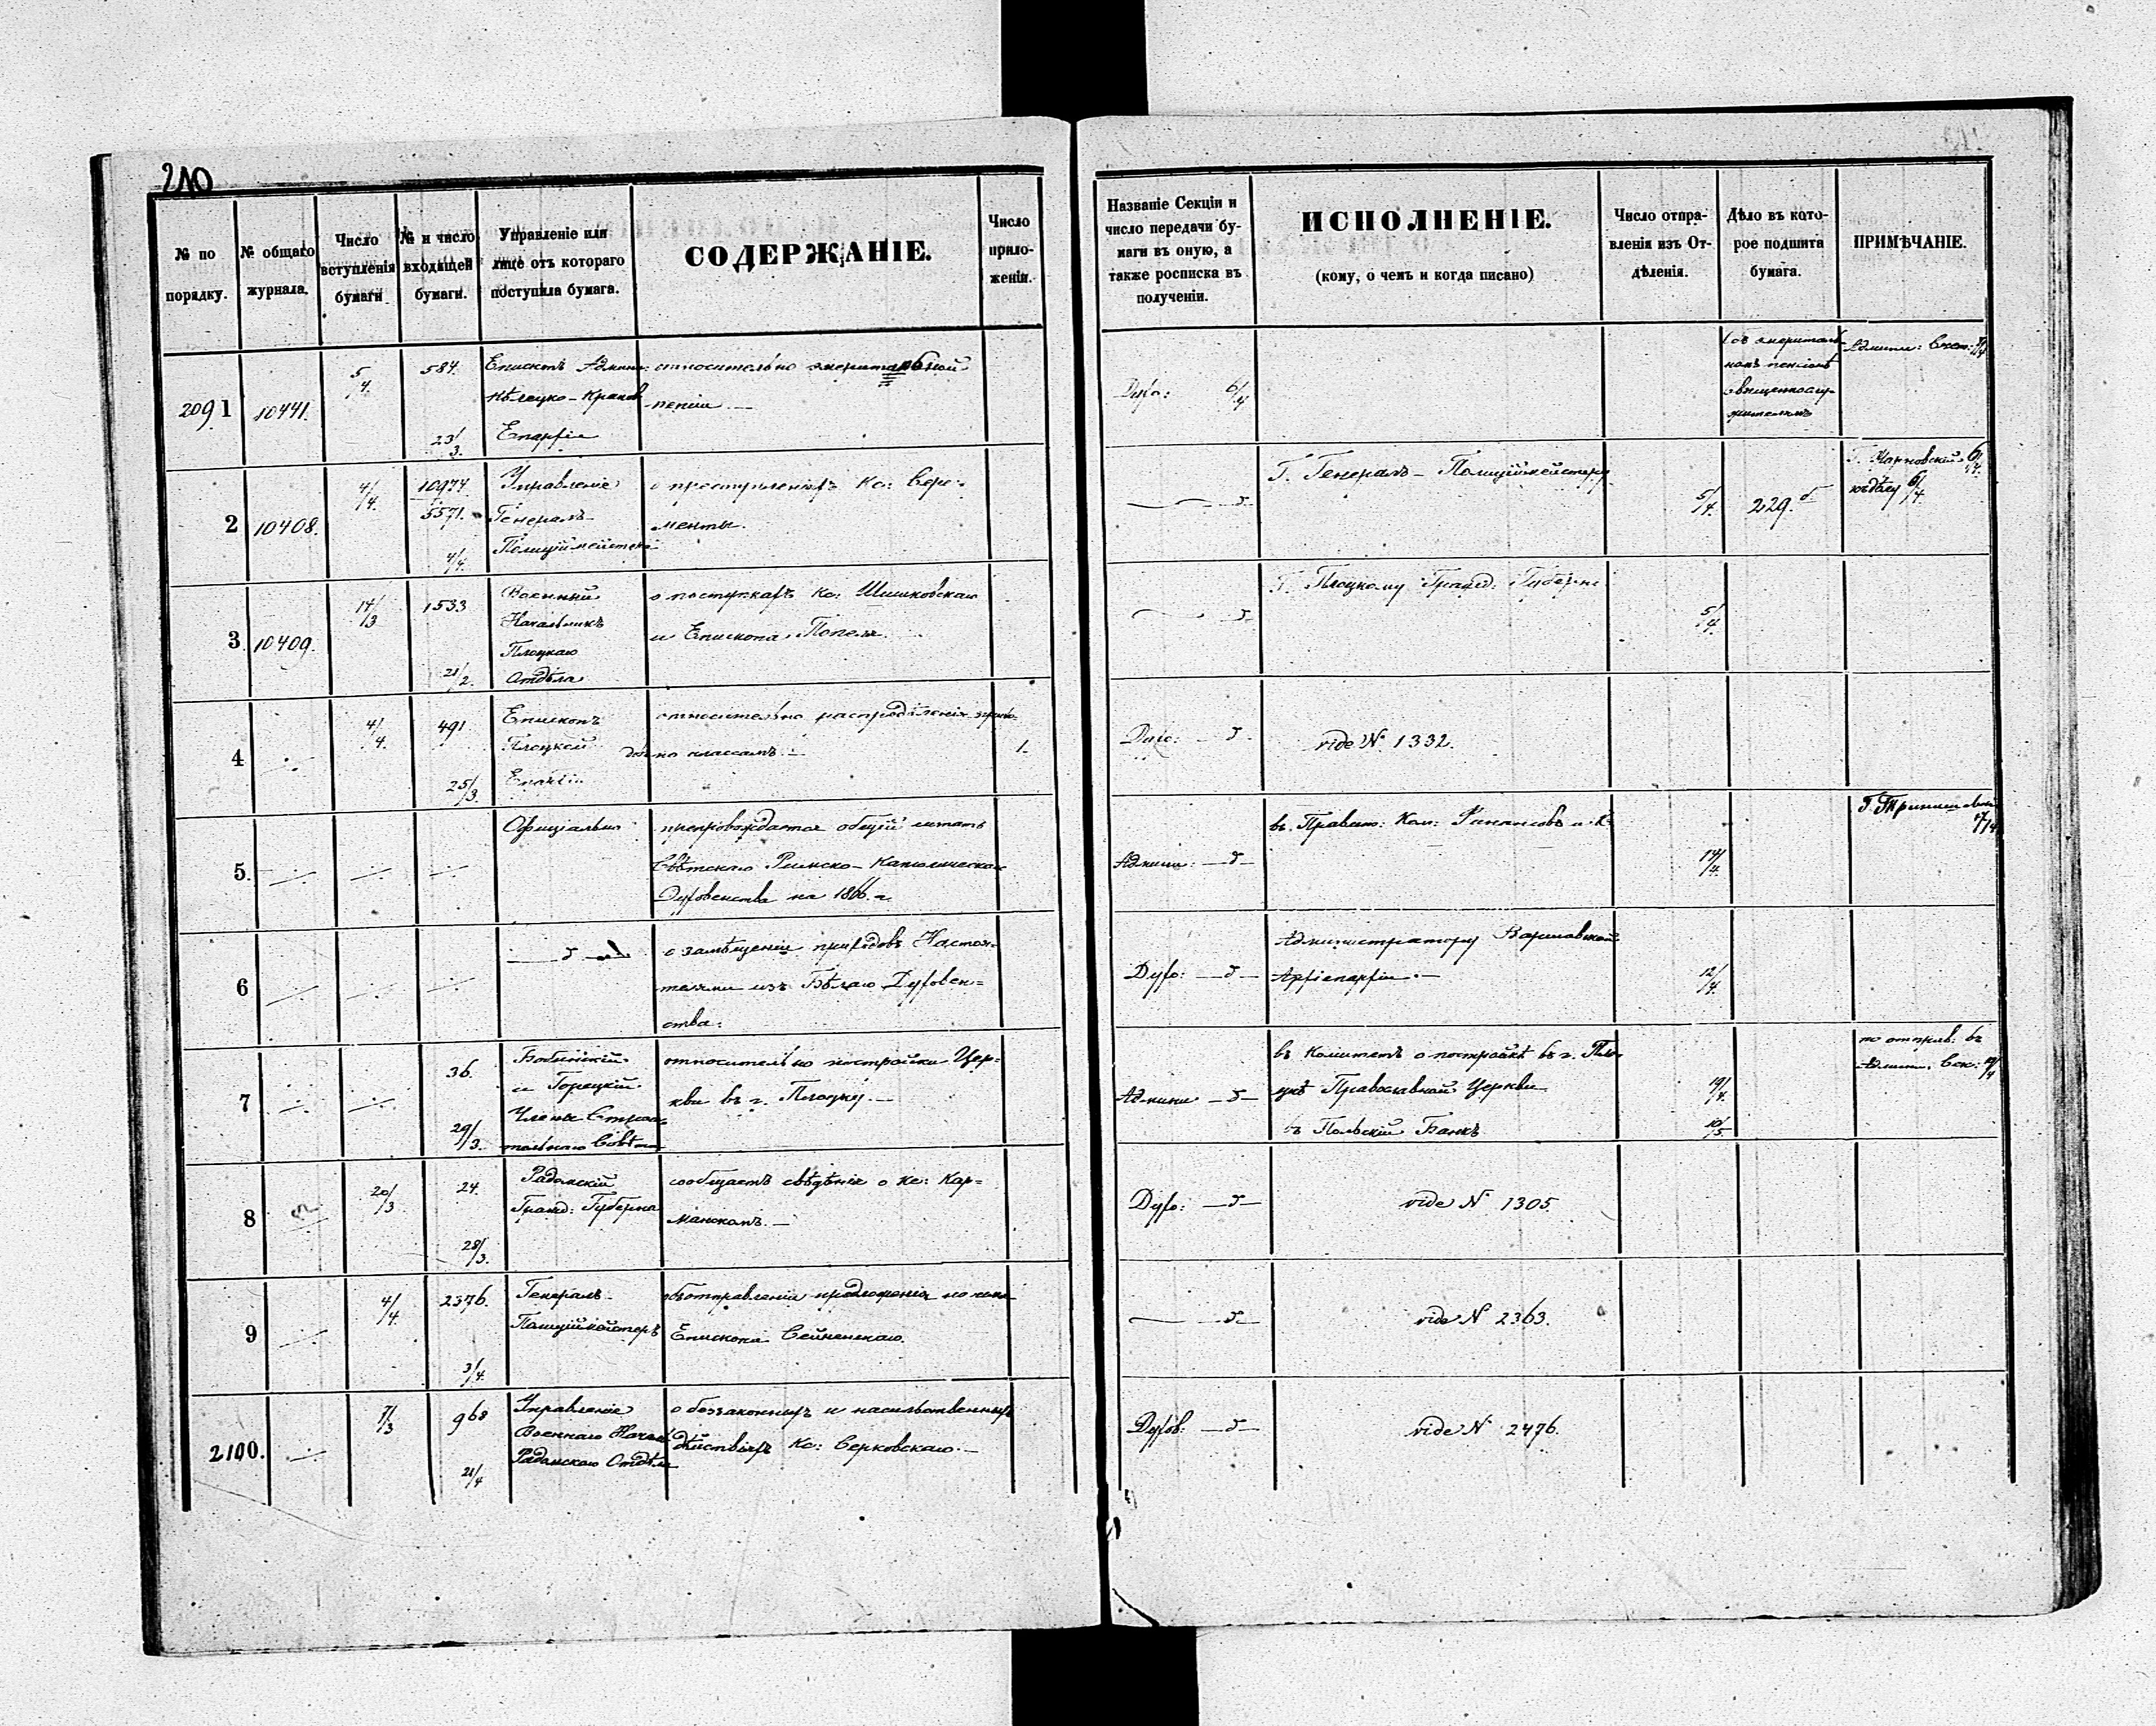 210
№ по порядку.
№ общаго журнала.
Число вступленія бумаги
№ и число входящей бумаги.
Управленіе или лице отъ котораго поступила бумага.
СОДЕРЖАНІЕ.
Число приложеній.
Названіе Секціи и число передачи бумаги въ оную, а также росписка въ полученіи.
ИСПОЛНЕНІЕ.
(кому, о чемъ и когда писано)
Число отправленія изъ Отдѣленія.
Дѣло въ которое подшита бумага.
ПРИМѢЧАНІЕ.
2091
10441.
5/4.
584.
23/3.
Епископъ Админ:
Кѣлецко-Краков
Епархіи
относительно эмеритальной
пенсіи.—
Духо: 6/4
объ эмериталь-
номъ пенсіонѣ
священнослу-
жителямъ
Админи: Сект:
2
10408.
4/4.
10974.
5571.
4/4.
Управленіе
Генералъ-
Полиціймейстера
о преступленіяхъ Кс: Вере-
менты.
— д —
Г. Генералъ-Полиціймейстеру
5/4.
229.
Г. Чарновскій 6/4.
къ дѣлу 6/4.
3.
10409.
14/3
1533
21/2.
Военный
Начальникъ
Плоцкаго
Отдѣла
о поступкахъ Кс: Шишковскаго
и Епископа Попеля.
— д —
Г. Плоцкому Гражд: Губерна
5/4.
4
4/4.
491.
25/3.
Епископъ
Плоцкой
Епархіи
относительно распредѣленія прихо-
довъ по классамъ.—
1.
Духо: — д —
vide № 1332.
5.
Офиціально
препровождается общій штатъ
Свѣтскаго Римско-Католическаго
Духовенства на 1866. г.
Админи: — д —
въ Правит: Ком: Финансовъ и К:
14/4.
6
— д —
о замѣщеніи приходовъ Настоя-
телями изъ Бѣлаго Духовен=
ства.
Духо: — д —
Администратору Варшавской
Архіепархіи.—
12/4.
7
36.
29/3.
Бобинскій
и Горецкій.
Члены Строи-
тельнаго Совѣта
относительно постройки Цер=
кви въ г. Плоцкѣ.—
Админи — д —
въ Комитетъ о постройкѣ въ г. Пло-
цкѣ Православной Церкви
въ Польскій Банкъ
19/4.
10/5.
по отправ: въ
Админ. Сек:
8
20/3
24.
28/3.
Радомскій
Гражд: Губерна
сообщаетъ свѣдѣнія о Кс: Кар=
манскомъ.—
Духо: — д —
vide N 1305.
9
4/4.
2376.
3/4.
Генералъ-
Полиціймейстеръ
объ отправленіи
Епископа Сейненскаго.
— д —
vide N 2363.
2100.
7/3
968
21/4
Управленіе
Военнаго Начал
Радомскаго Отдѣла
о беззаконныхъ и насильственныхъ
дѣйствіяхъ Кс: Серковскаго.—
Духов: — д —
vide N 2476.